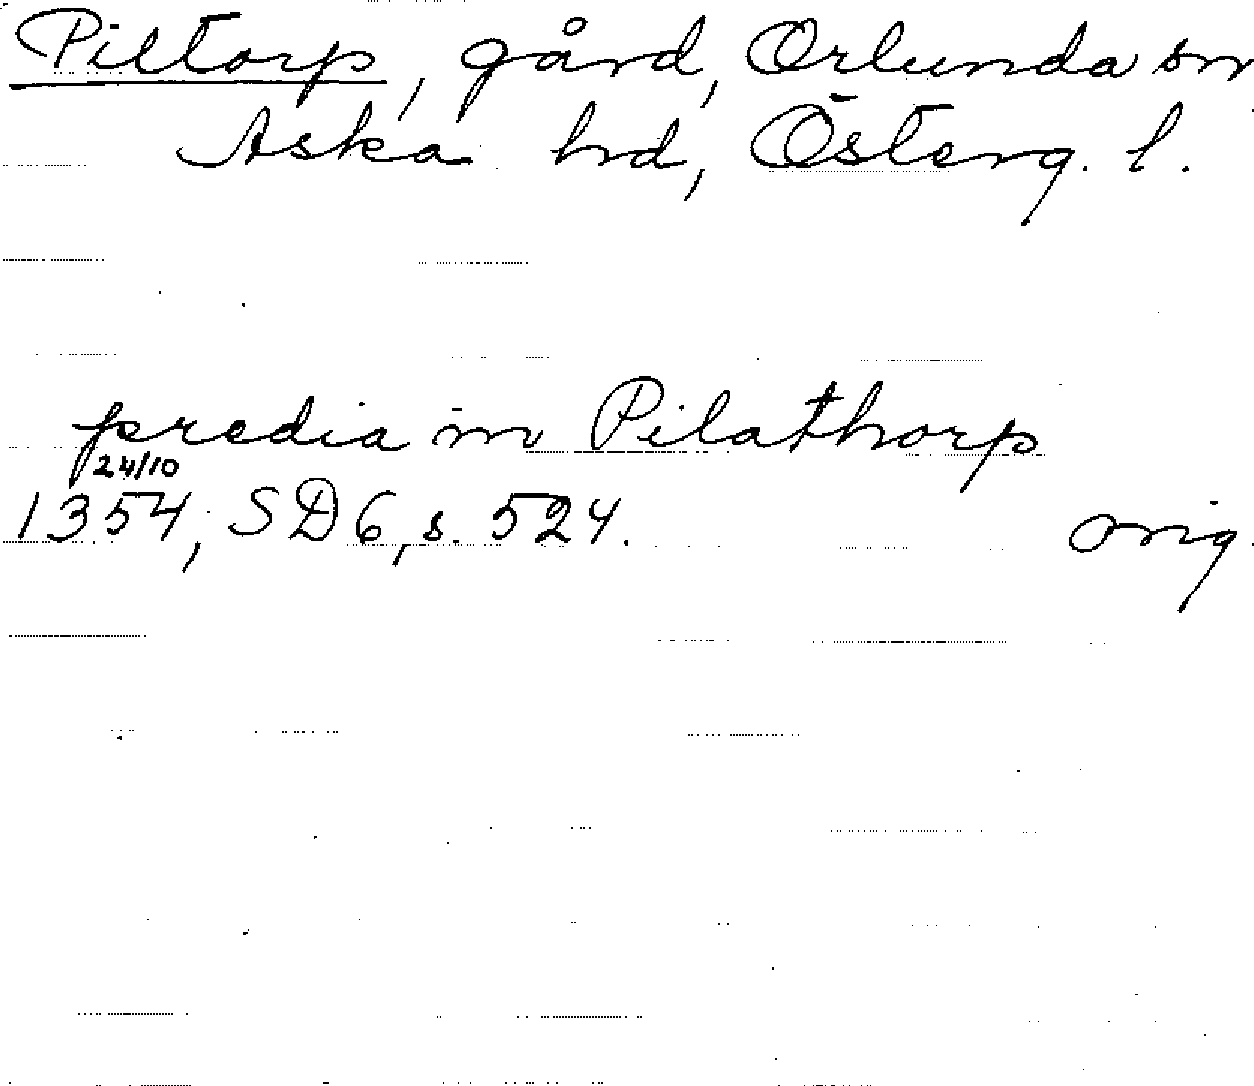 Piltorp, gård, Orlunda sn
Aska hd, Österg. l.
predia in Pilathorp
24/10
1354, SD6, s. 524. orig.